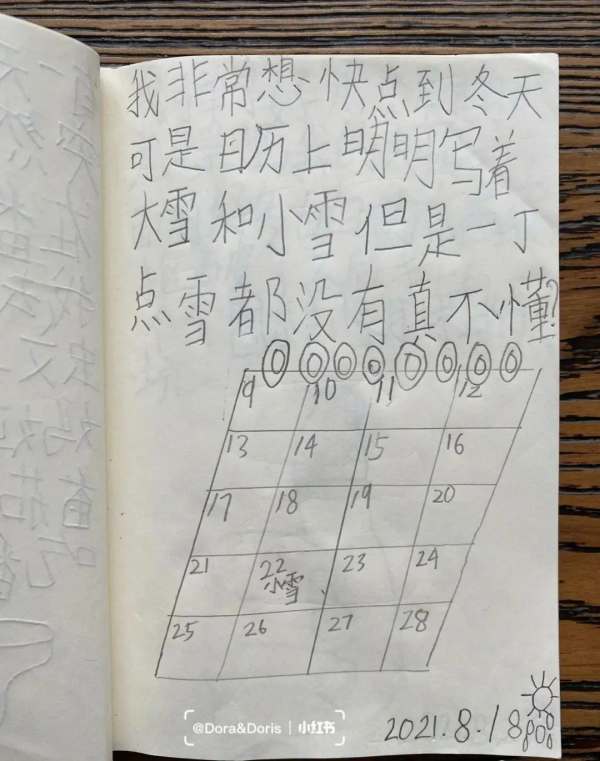 我非常想快点到冬天
可是日历上明明写着
大雪和小雪但是一丁
点雪都没有真不懂?
9 10 11 12
13 14 15 16
17 18 19 20
21 22 23 24
小雪
25 26 27 28
@Dora&Doris | 小红书
2021.8.18